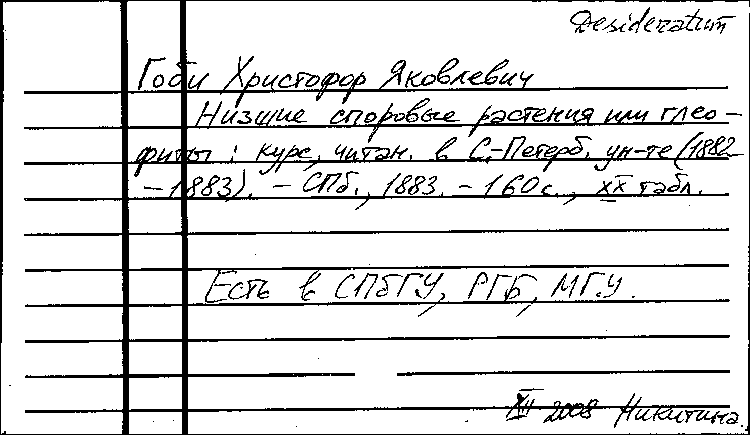 Desideratum
Гоби Христофор Яковлевич
Низшие споровые растения или глео-
фиты : курс, читан. в С.-Петерб. ун-те (1882
-1883). - СПб., 1883. - 160 с., XX табл.
Есть в СПбГУ, РГБ, МГУ.
XII 2008 Никитина